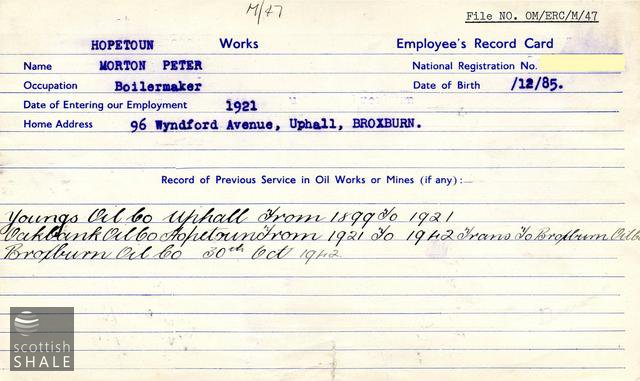 M/47
File NO. OM/ERC/M/47
HOPETOUN Works Employee's Record Card
Name MORTON PETER National Registration No.
Occupation Boilermaker Date of Birth /12/85.
Date of Entering our Employment 1921
Home Address 96 Wyndford Avenue, Uphall, BROXBURN.
Record of Previous Service in Oil Works or Mines (if any):—
Youngs Oil Co Uphall From 1899 To 1921
Oakbank Oil Co Hopetoun From 1921 To 1942 Trans To Broxburn Oil Co
Broxburn Oil Co 30th Oct 1942
scottish
SHALE